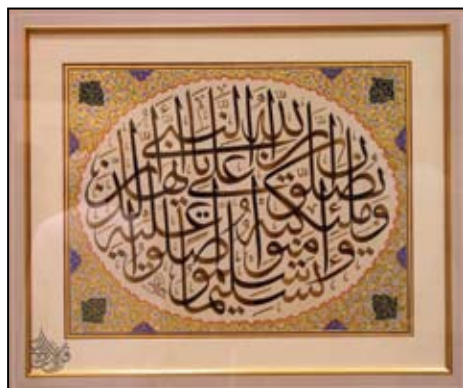 إن الله وملئكته يصلون على النبي يأيها الذين آمنوا صلوا عليه وسلموا تسليما